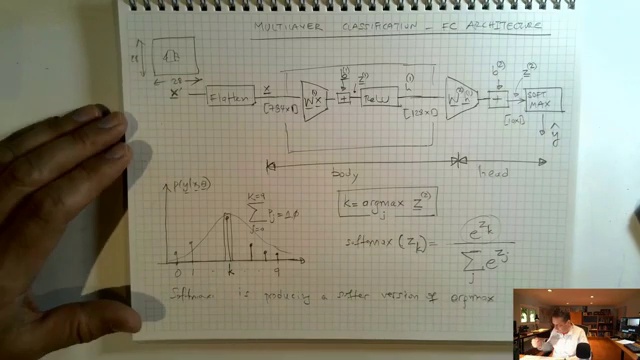 MULTILAYER CLASSIFICATION - FC ARCHITECTURE
28
28
x
Flatten
x
[784x1]
W(1) x
b(1)
+
z(1)
ReLU
h(1)
[128x1]
W(2) h(1)
b(2)
+
z(2)
[10x1]
SOFT
MAX
ŷ
body
head
p(y|x,θ)
0 1 . k 9
K = argmax z(2)
j
softmax (z_k) = e^{z_k}
∑ e^{z_j}
j
Softmax is producing a softer version of argmax